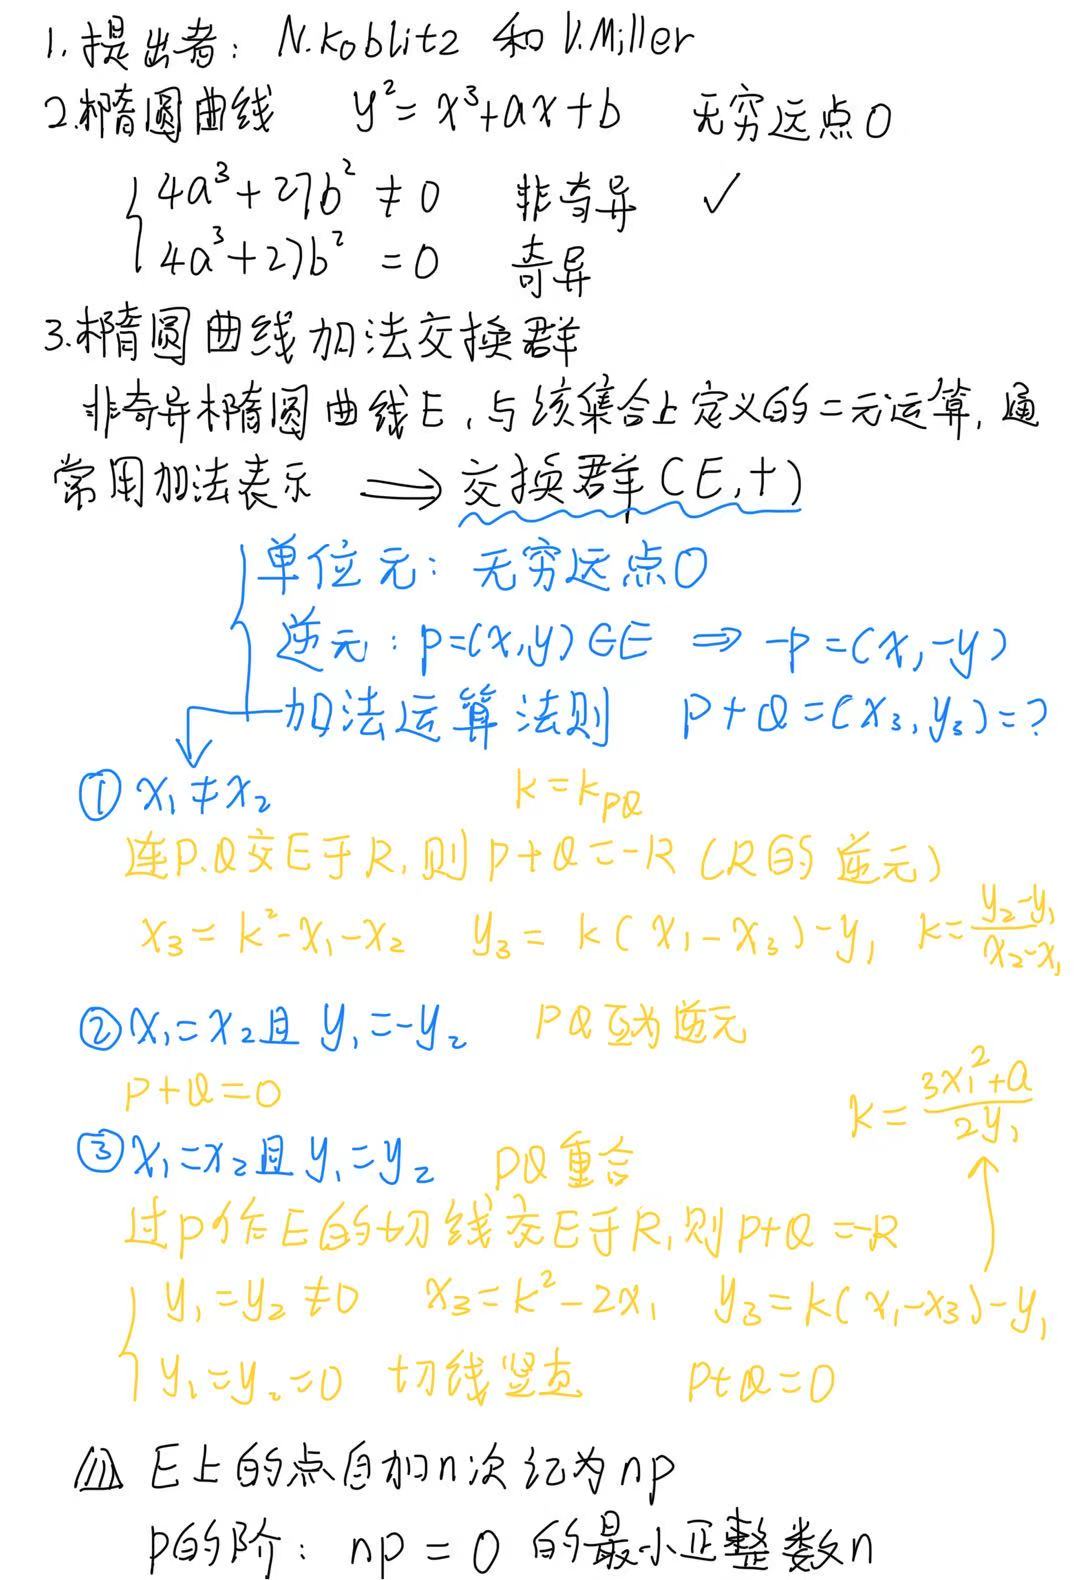 1.提出者：N.Koblitz 和 V.Miller
2.椭圆曲线 y²=x³+ax+b 无穷远点O
4a³+27b²≠0 非奇异 ✓
4a³+27b²=0 奇异
3.椭圆曲线加法交换群
非奇异椭圆曲线E,与该集合上定义的二元运算,通
常用加法表示 ⟹ 交换群(E,+)
单位元：无穷远点O
逆元：P=(x,y)∈E ⇒ -P=(x,-y)
加法运算法则 P+Q=(x₃,y₃)=?
① x₁≠x₂ k=k_PQ
连P.Q交E于R,则P+Q=-R (R的逆元)
x₃=k²-x₁-x₂ y₃=k(x₁-x₃)-y₁ k=(y₂-y₁)/(x₂-x₁)
② x₁=x₂且y₁=-y₂ PQ互为逆元
P+Q=O
k=(3x₁²+a)/(2y₁)
③ x₁=x₂且y₁=y₂ PQ重合
过P作E的切线交E于R,则P+Q=-R
y₁=y₂≠0 x₃=k²-2x₁ y₃=k(x₁-x₃)-y₁
y₁=y₂=0 切线竖直 P+Q=O
E上的点自加n次记为nP
P的阶：nP=O 的最小正整数n